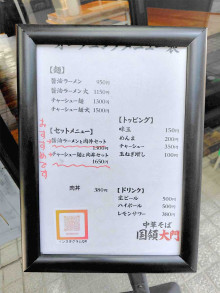 【麺】
醤油ラーメン 950円
醤油ラーメン大 1150円
チャーシュー麺 1300円
チャーシュー麺大 1500円
【セットメニュー】
醤油ラーメンと肉丼セット
1300円
チャーシュー麺と肉丼セット
1650円
おすすめです
肉丼 380円
【トッピング】
味玉 150円
めんま 200円
チャーシュー 350円
玉ねぎ増し 100円
【ドリンク】
生ビール 500円
ハイボール 500円
レモンサワー
中華そば
国領大門